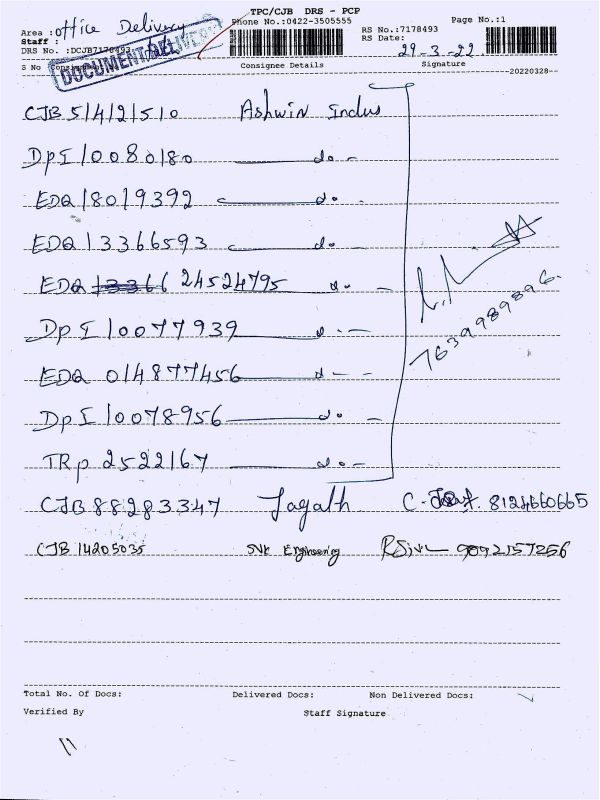 TPC/CJB DRS - PCP
Phone No.:0422-3505555
Page No.:1
Area : office Delivery
Staff :
DRS No. :DCJB7178493
DOCUMENT DELIVERY
RS No.:7178493
RS Date: 29-3-22
S No Consignment
Consignee Details
Signature
20220328
CJB 514121510 Ashwin Indus
DPI 10080180 do -
EDQ 18019392 do -
EDQ 13366593 do -
EDQ 24524795 do -
DPI 10077939 do -
EDQ 014877456 do -
DPI 10078956 do -
TRP 2522167 do -
7639989896.
CJB 88283347 Jagath C- 8124660665
CJB 14205035 SVK Engineering RSiva 9092157256
Total No. Of Docs: Delivered Docs: Non Delivered Docs:
Verified By Staff Signature
11